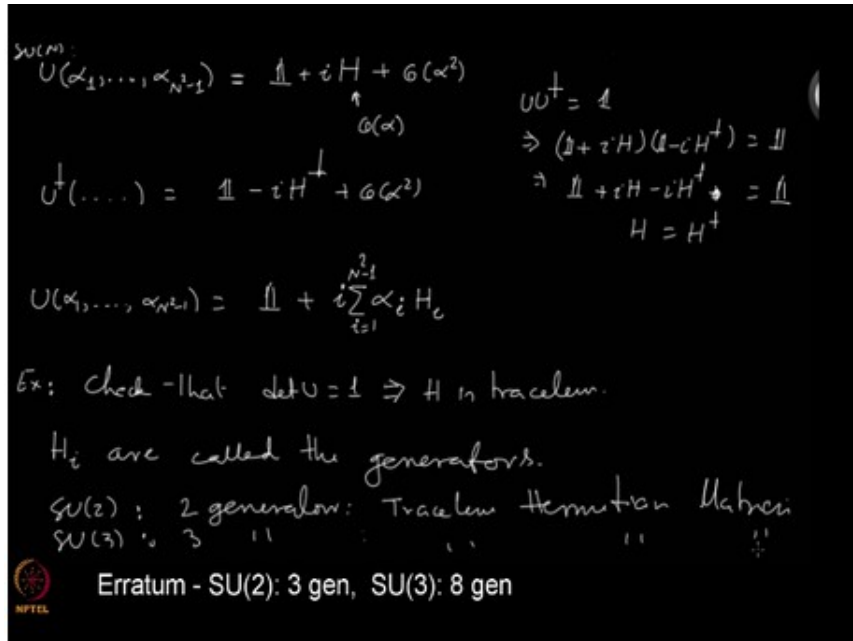 SU(N):
U(α₁,...,α_{N²-1}) = 𝟙 + iH + O(α²)
↑
O(α)
U†(....) = 𝟙 - iH† + O(α²)
UU† = 𝟙
⇒ (𝟙 + iH)(𝟙 - iH†) = 𝟙
⇒ 𝟙 + iH - iH† = 𝟙
H = H†
U(α₁,...,α_{N²-1}) = 𝟙 + i∑_{i=1}^{N²-1} α_i H_i
Ex: Check that det U = 1 ⇒ H is traceless.
H_i are called the generators.
SU(2) : 2 generators: Traceless Hermitian Matrices
SU(3) : 3 " : " " "
Erratum - SU(2): 3 gen, SU(3): 8 gen
NPTEL